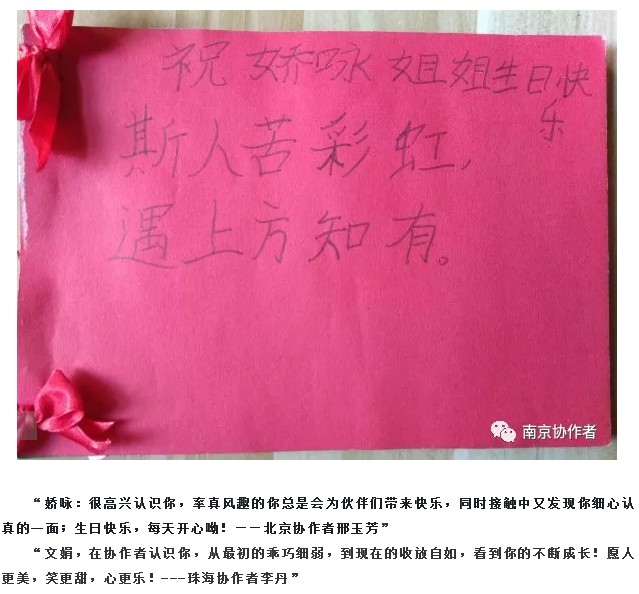 祝娇咏姐姐生日快
乐
斯人苦彩虹,
遇上方知有。
南京协作者
“娇咏:很高兴认识你,率真风趣的你总是会为伙伴们带来快乐,同时接触中又发现你细心认
真的一面;生日快乐,每天开心呦!——北京协作者邢玉芳”
“文娟,在协作者认识你,从最初的乖巧细弱,到现在的收放自如,看到你的不断成长!愿人
更美,笑更甜,心更乐!---珠海协作者李丹”